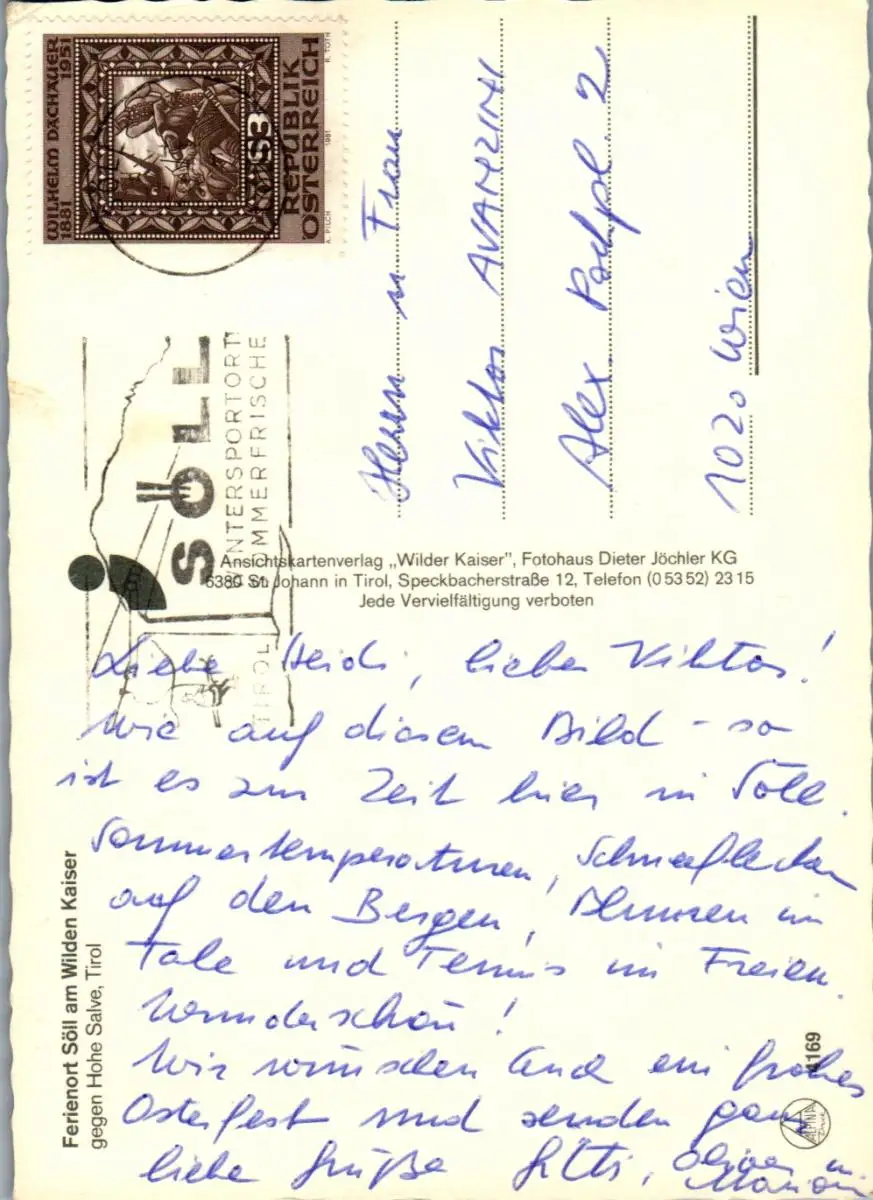 WILHELM DACHAUER
1881 1951
S3
REPUBLIK
ÖSTERREICH
A. PILCH 1981 R. TOTH
SÖLL
WINTERSPORTORT
SOMMERFRISCHE
TIROL
Herrn u Frau
Viktor AVANZINI
Alex. Pochpl. 2
1020 Wien
Ansichtskartenverlag „Wilder Kaiser", Fotohaus Dieter Jöchler KG
6380 St. Johann in Tirol, Speckbacherstraße 12, Telefon (0 53 52) 23 15
Jede Vervielfältigung verboten
Liebe Heidi, lieber Viktor!
Wie auf diesem Bild – so
ist es zur Zeit hier in Söll.
Sommertemperaturen, Schneeflecken
auf den Bergen, Blumen im
Tale und Tennis im Freien.
Wunderschön!
Wir wünschen Euch ein frohes
Osterfest und senden ganz
liebe Grüße
Ferienort Söll am Wilden Kaiser
gegen Hohe Salve, Tirol
4169
ALPINA
Druck